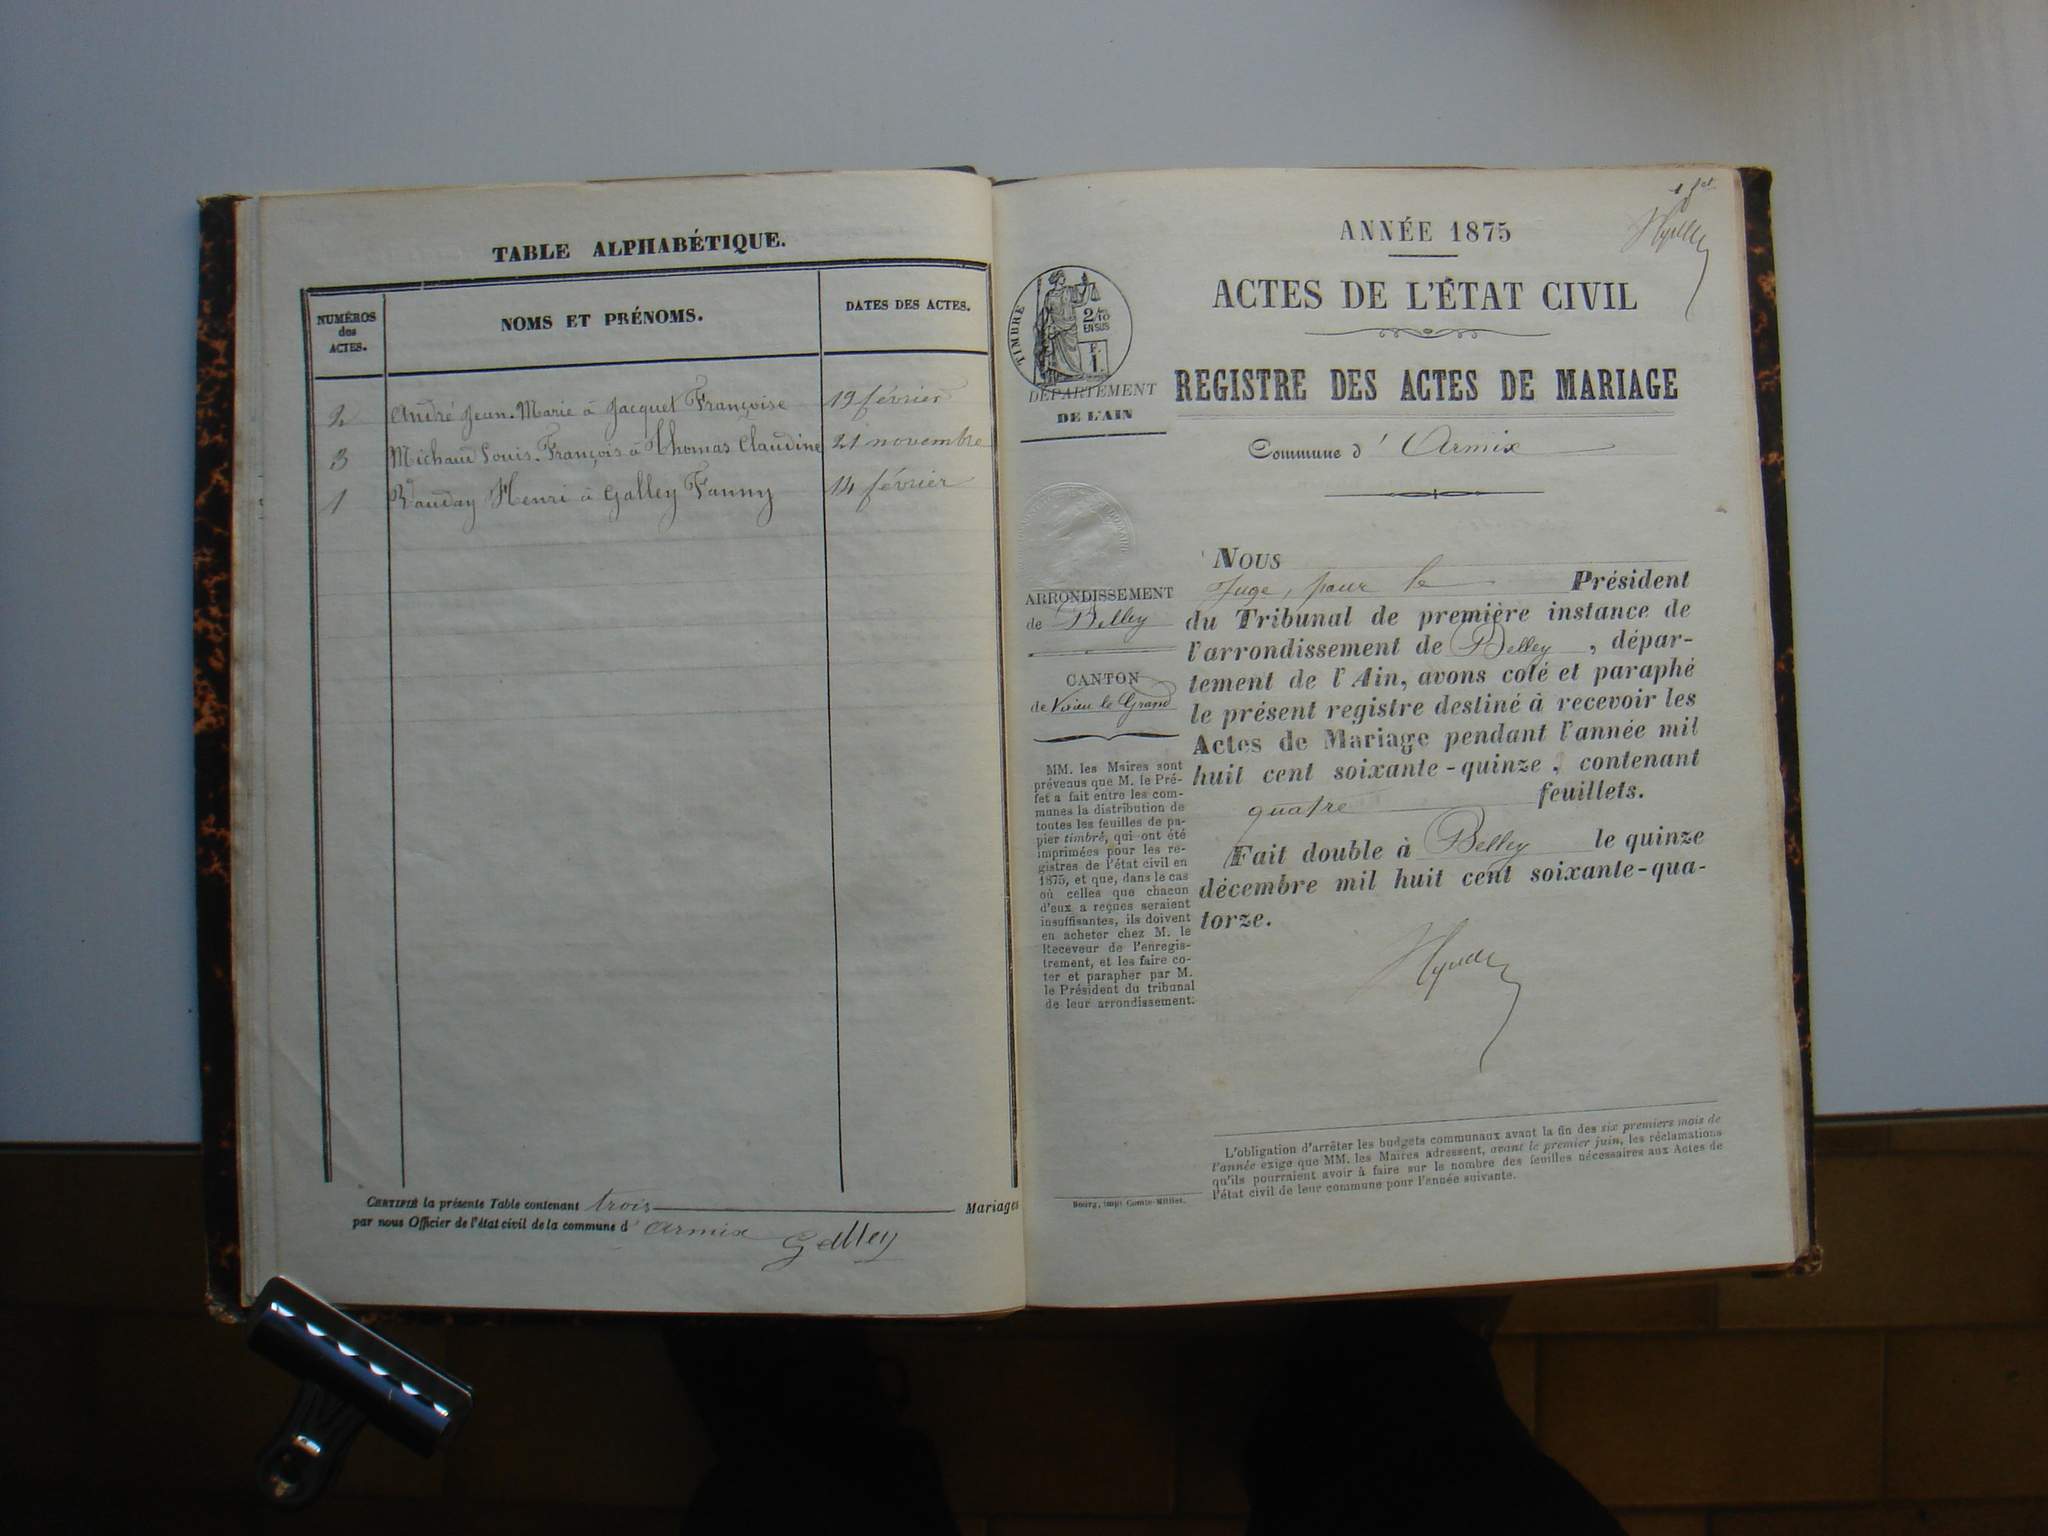 TABLE ALPHABÉTIQUE.
NUMÉROS des ACTES.
NOMS ET PRÉNOMS.
DATES DES ACTES.
2 André Jean-Marie à Jacquet Françoise 19 février
3 Michaud Louis-François à Thomas Claudine 21 novembre
1 Rauday Henri à Galley Fanny 14 février
CERTIFIÉ la présente Table contenant trois Mariages
par nous Officier de l'état civil de la commune d' Armix
Galley
1er ft
ANNÉE 1875
ACTES DE L'ÉTAT CIVIL
REGISTRE DES ACTES DE MARIAGE
Commune d' Armix
TIMBRE
2/10
EN SUS
F.
1.
DÉPARTEMENT
DE L'AIN
ARRONDISSEMENT
de Belley
CANTON
de Virieu le Grand
MM. les Maires sont
prévenus que M. le Pré-
fet a fait entre les com-
munes la distribution de
toutes les feuilles de pa-
pier timbré, qui ont été
imprimées pour les re-
gistres de l'état civil en
1875, et que, dans le cas
où celles que chacun
d'eux a reçues seraient
insuffisantes, ils doivent
en acheter chez M. le
Receveur de l'enregis-
trement, et les faire co-
ter et parapher par M.
le Président du tribunal
de leur arrondissement.
Bourg, imp. Comte-Milliet.
NOUS
Juge, pour le Président
du Tribunal de première instance de
l'arrondissement de Belley, dépar-
tement de l'Ain, avons coté et paraphé
le présent registre destiné à recevoir les
Actes de Mariage pendant l'année mil
huit cent soixante-quinze, contenant
quatre feuillets.
Fait double à Belley le quinze
décembre mil huit cent soixante-qua-
torze.
L'obligation d'arrêter les budgets communaux avant la fin des six premiers mois de
l'année exige que MM. les Maires adressent, avant le premier juin, les réclamations
qu'ils pourraient avoir à faire sur le nombre des feuilles nécessaires aux Actes de
l'état civil de leur commune pour l'année suivante.